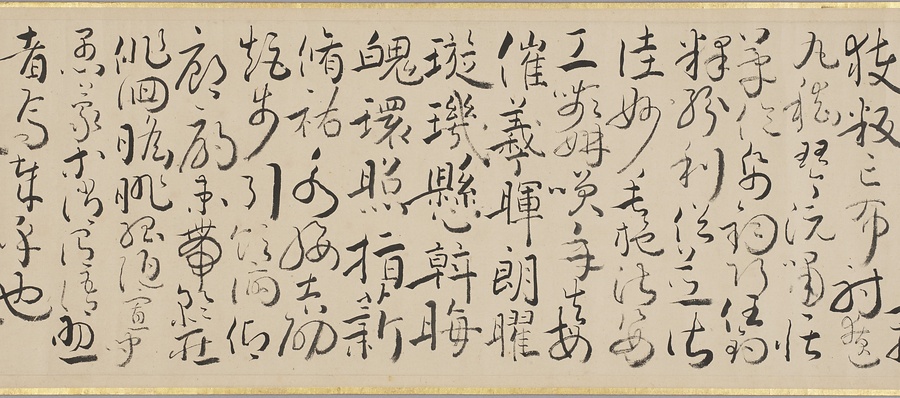 獲叛亡布射遼
丸嵇琴阮嘯恬
筆倫紙鈞巧任釣
釋紛利俗並皆
佳妙毛施淑姿
工顰妍笑年矢每
催羲暉朗曜
璇璣懸斡晦
魄環照指薪
脩祜永綏吉劭
矩步引領俯仰
廊廟束帶矜莊
徘徊瞻眺孤陋寡聞
愚蒙等誚謂語助
者焉哉乎也